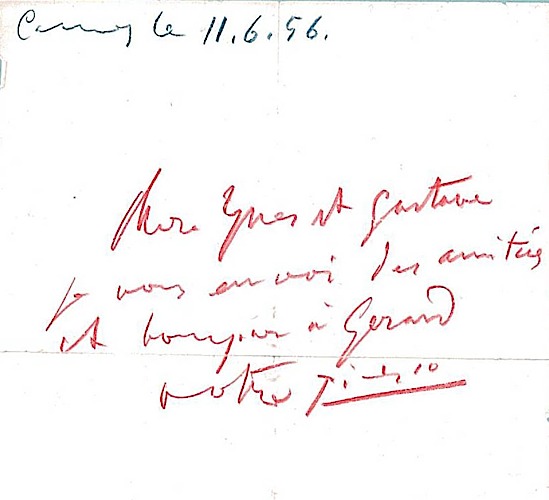 Cannes le 11.6.56.
Yves et Gustave
je vous envoi des amitiés
et bonjour à Gerard
votre Picasso